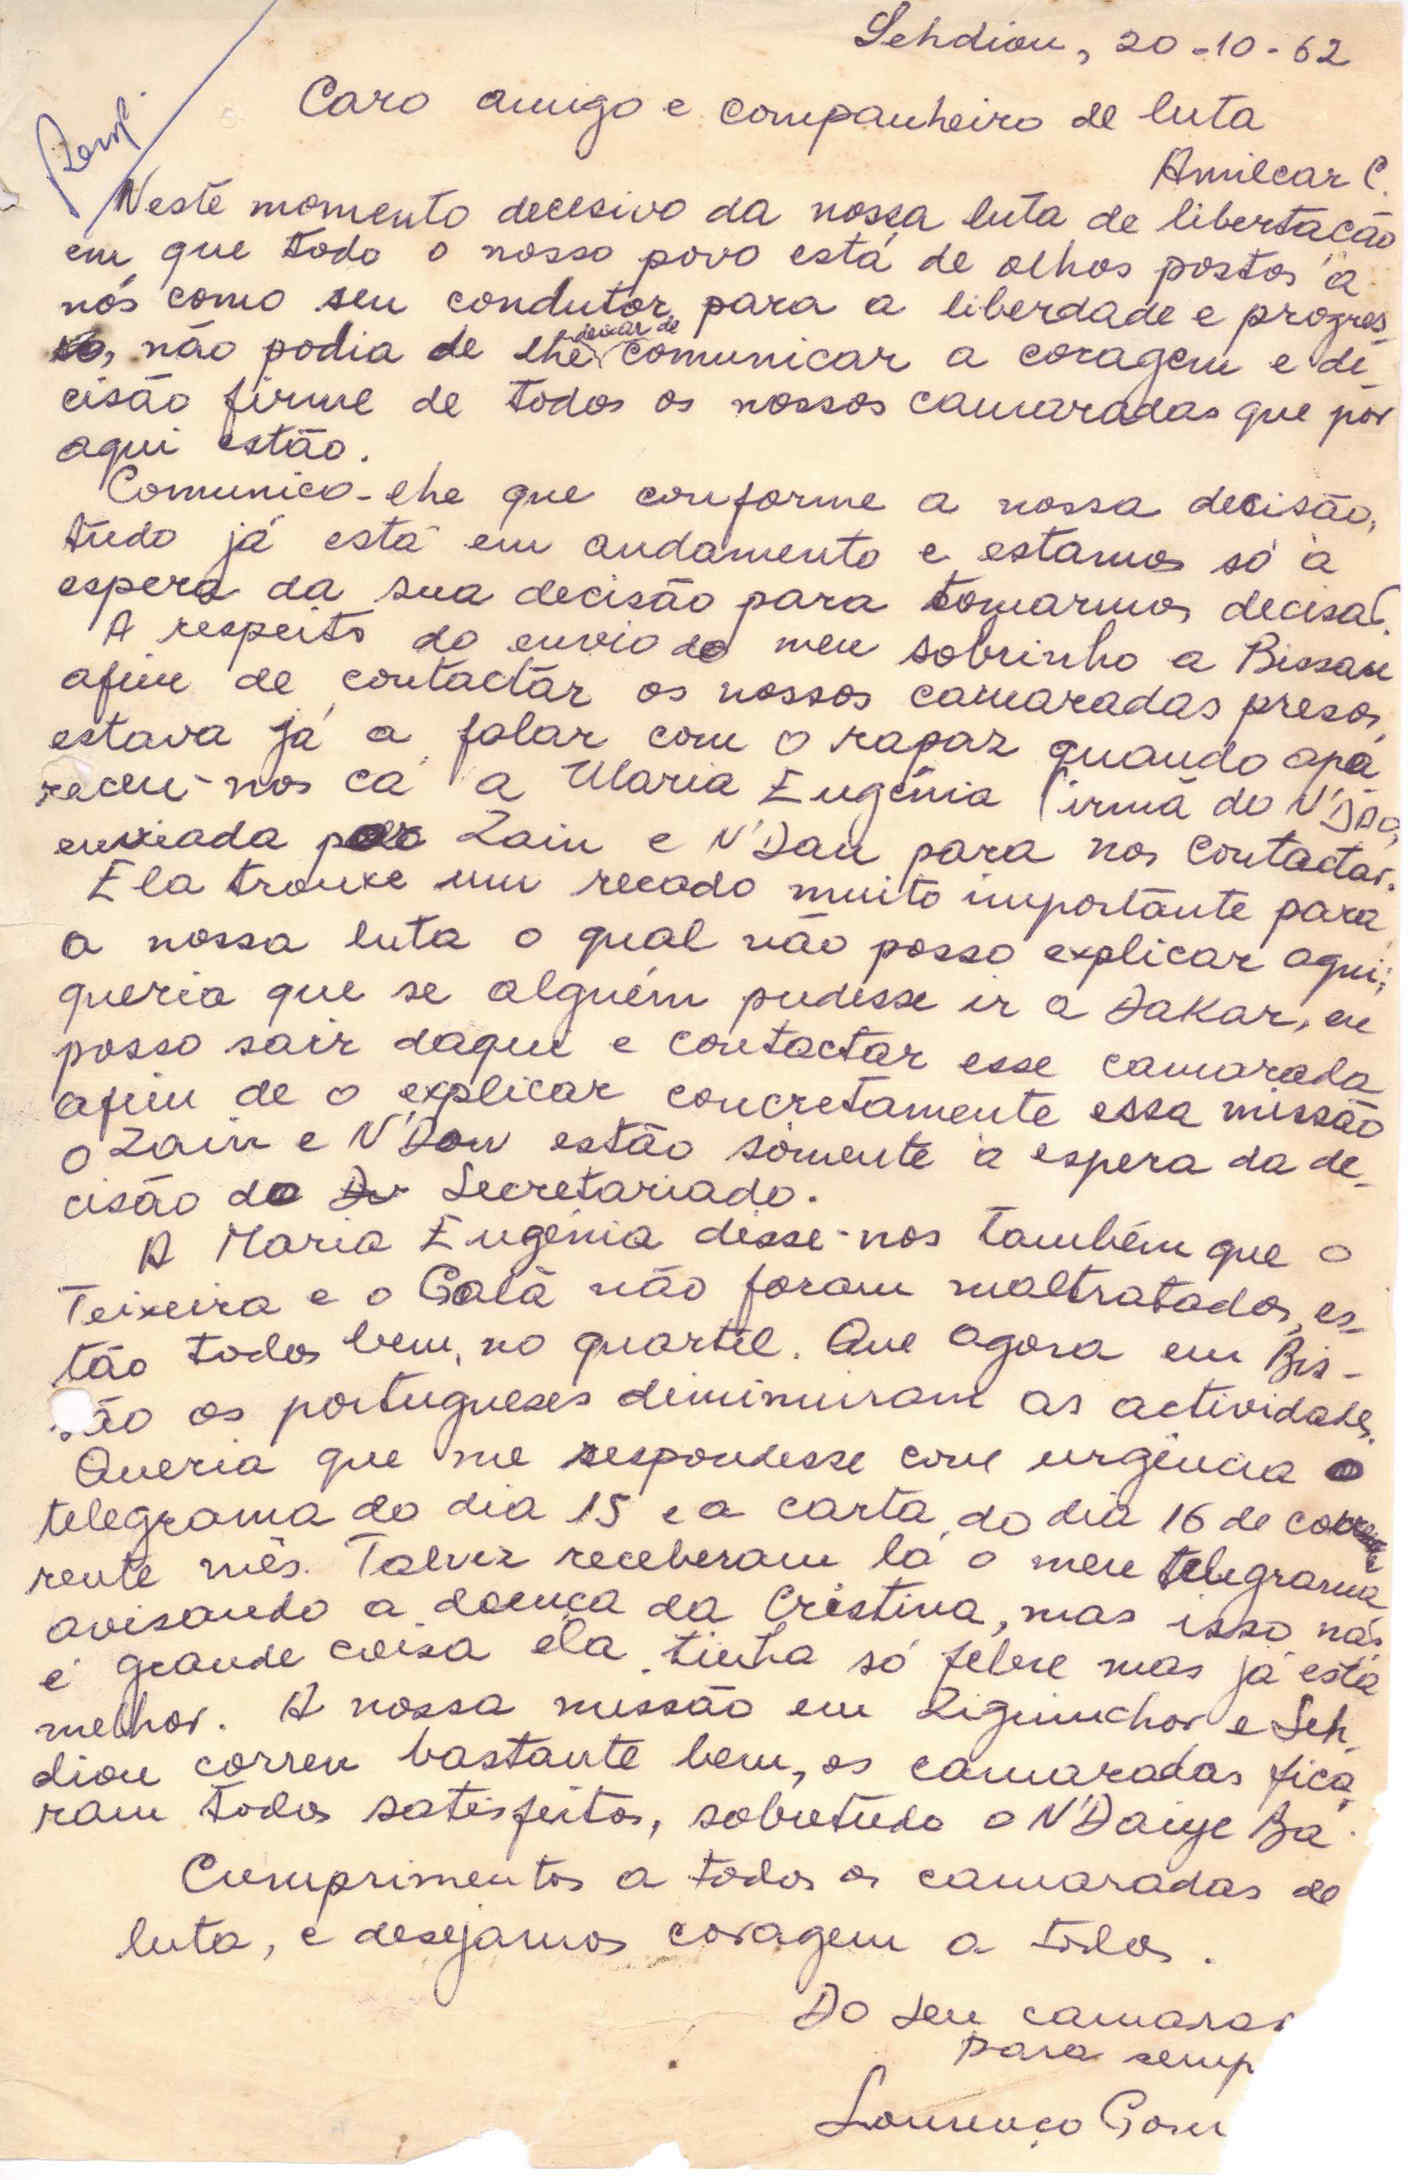 Sehdiou, 20-10-62
Caro amigo e companheiro de luta
Amilcar C.
Neste momento decesivo da nossa luta de libertação
em que todo o nosso povo está de olhos postos a
nós como seu condutor para a liberdade e progres-
so, não podia de lhe deixar de comunicar a coragem e de-
cisão firme de todos os nossos camaradas que por
aqui estão.
Comunico-lhe que conforme a nossa decisão,
tudo já está em andamento e estamos só à
espera da sua decisão para tomarmos decisão.
A respeito do envio do meu sobrinho a Bissau
afim de contactar os nossos camaradas presos,
estava já a falar com o rapaz quando apa
receu-nos cá a Maria Eugénia (irmã do N'Dão,
enviada por Zain e N'Dau para nos contactar.
Ela trouxe um recado muito importante para
a nossa luta o qual não posso explicar aqui;
queria que se alguém pudesse ir a Dakar, eu
posso sair daqui e contactar esse camarada
afim de o explicar concretamente essa missão
o Zain e N'Dau estão sòmente à espera da de-
cisão do Secretariado.
A Maria Eugénia disse-nos também que o
Teixeira e o Galá não foram maltratados, es-
tão todos bem, no quartel. Que agora em Bis-
são os portugueses diminuiram as actividades.
Queria que me respondesse com urgência o
telegrama do dia 15 e a carta do dia 16 de cor
rente mês. Talvez receberam lá o meu telegrama
avisando a doença da Cristina, mas isso não
é grande coisa ela tinha só febre mas já está
melhor. A nossa missão em Ziguinchor e Seh-
diou correu bastante bem, os camaradas fica
ram todos satisfeitos, sobretudo o N'Daiye Ba.
Cumprimentos a todos os camaradas de
luta, e desejamos coragem a todos.
Do seu camarar
para semp
Lourenço Gom